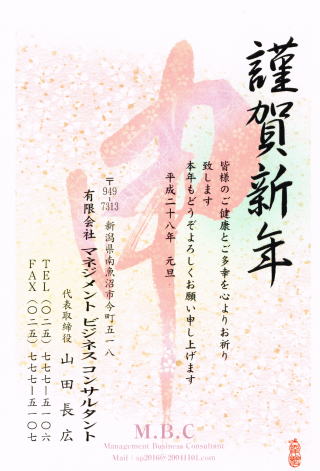 謹賀新年
皆様のご健康とご多幸を心よりお祈り
致します
本年もどうぞよろしくお願い申し上げます
平成二十八年 元旦
〒949-7313 新潟県南魚沼市今町五一八
有限会社 マネジメント ビジネス コンサルタント
代表取締役 山田 長広
TEL (〇二五) 七七七ー五一〇六
FAX (〇二五) 七七七ー五一〇七
M.B.C
Management Business Consultant
Mail : ap2016@20041101.com